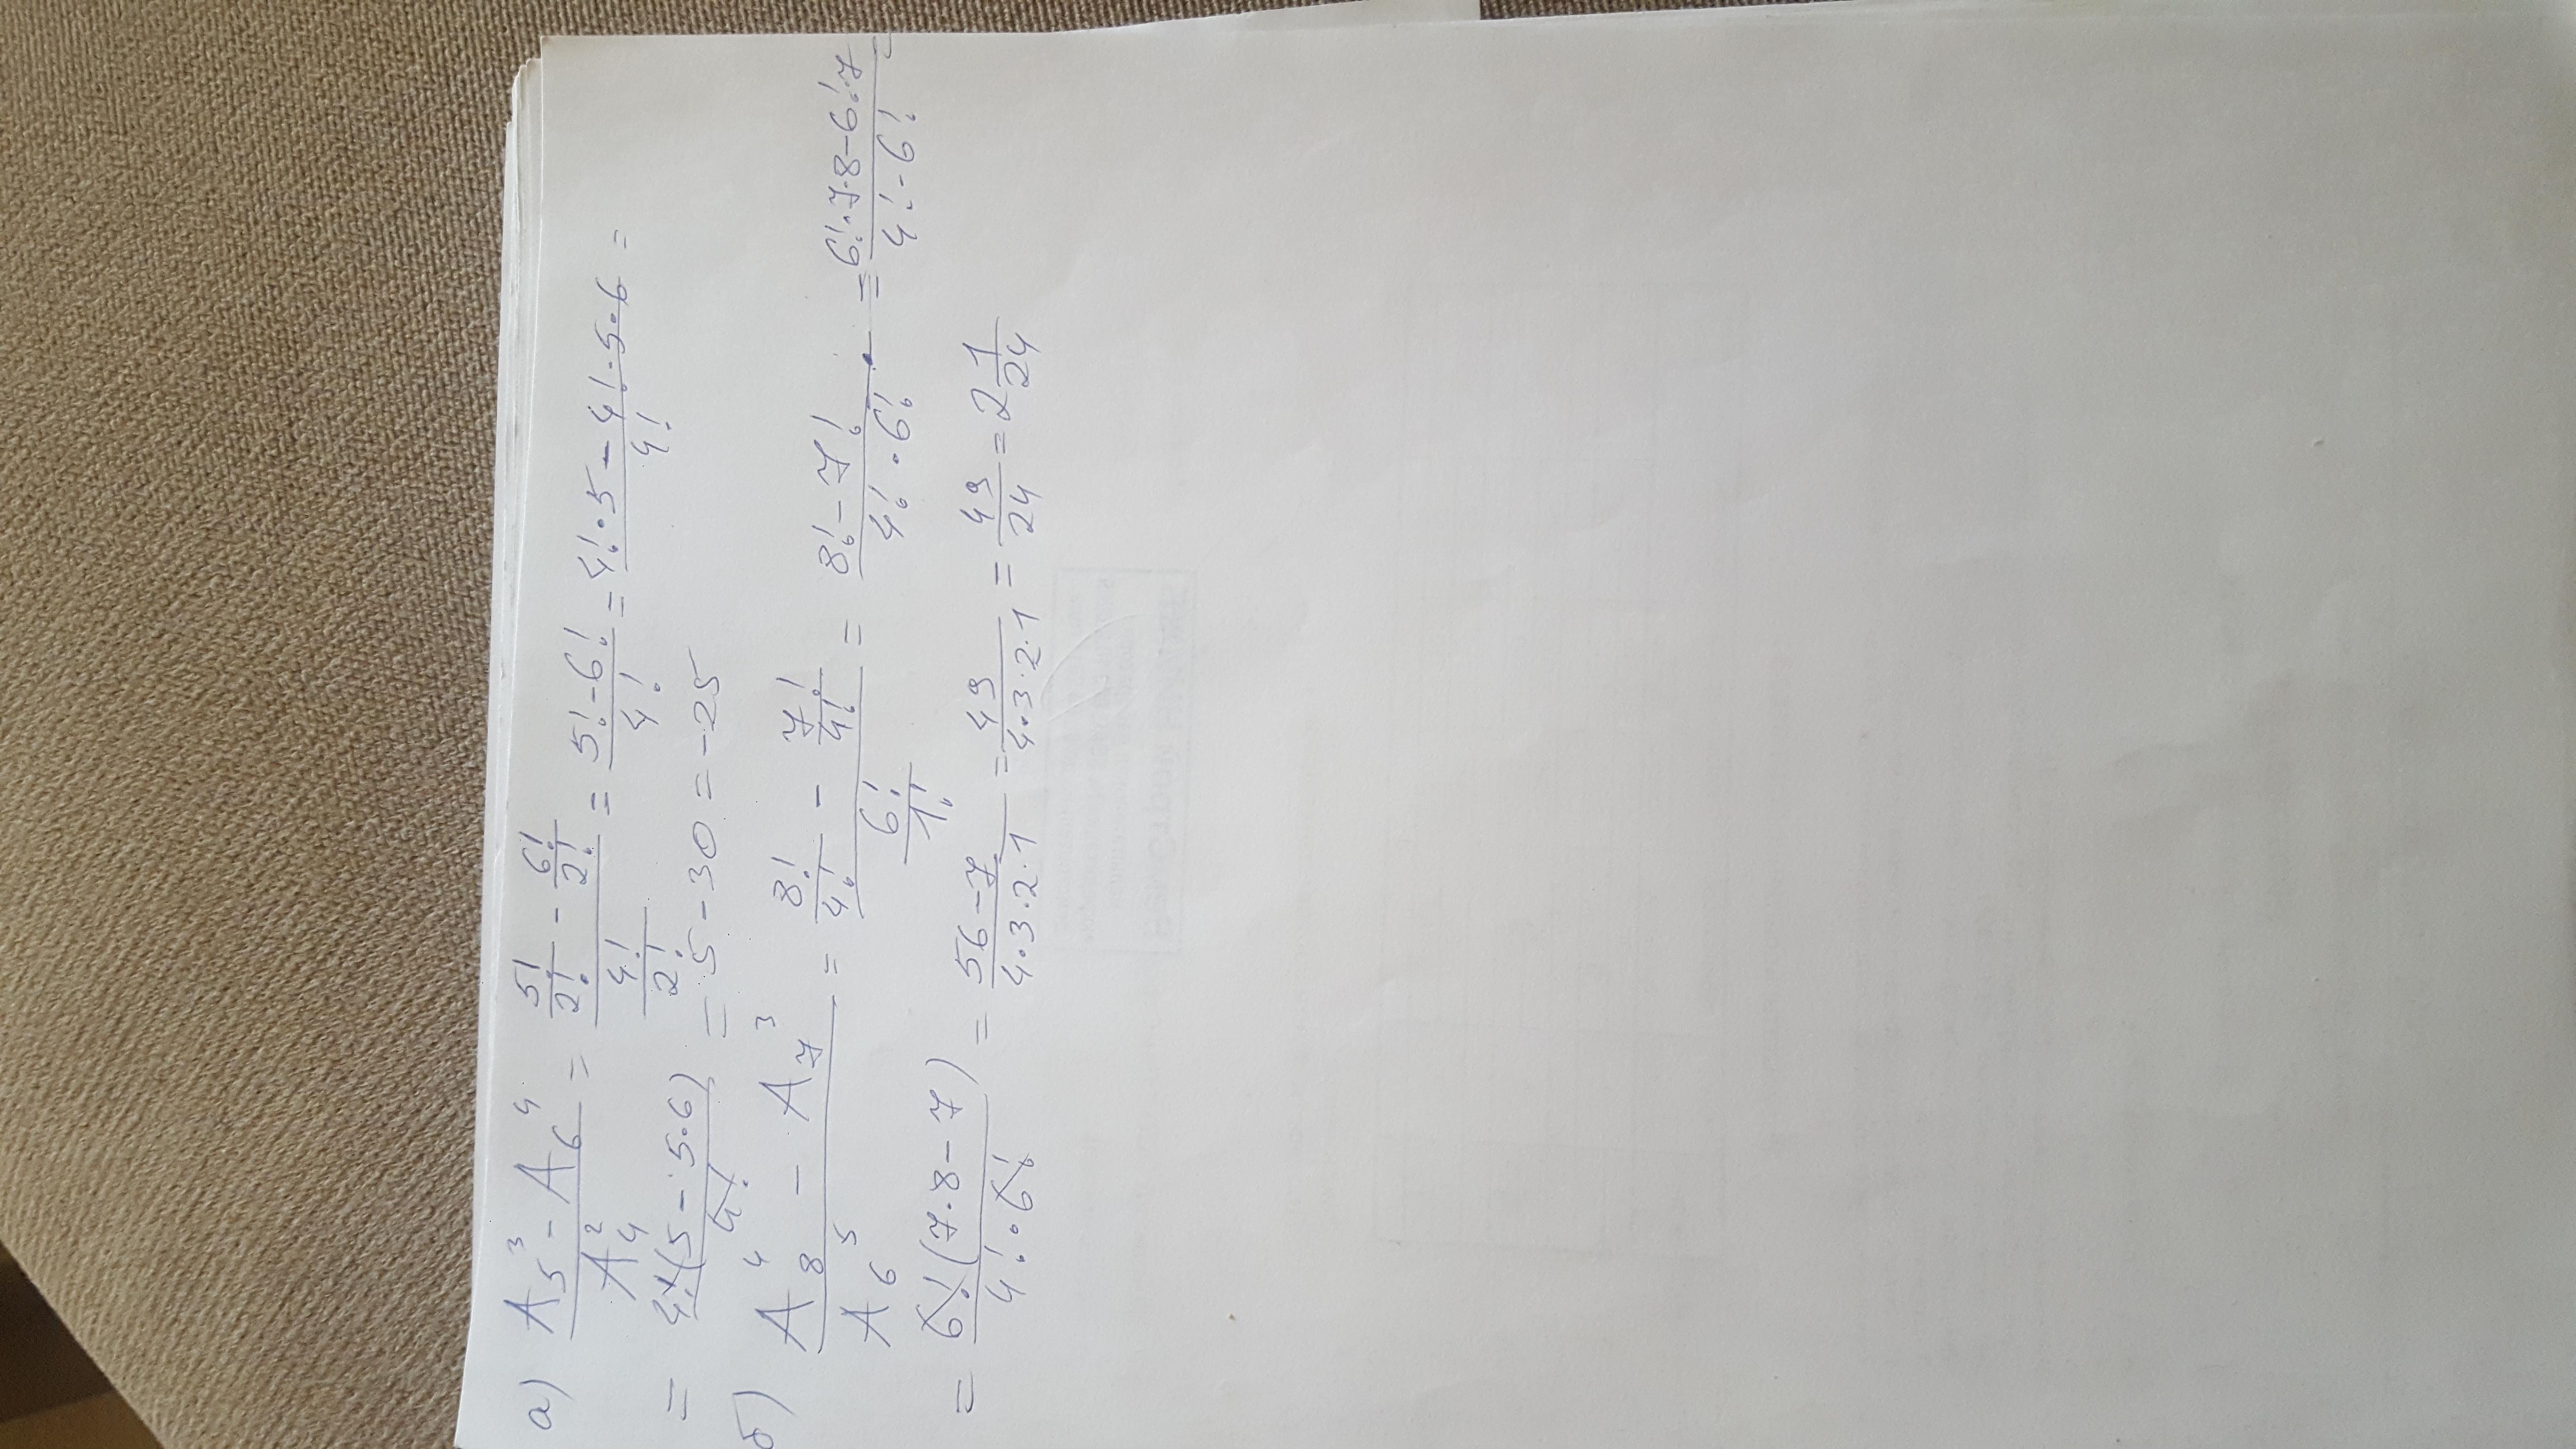 а) (A₅³ - A₆⁴)/A₄² = (5!/2! - 6!/2!)/(4!/2!) = (5! - 6!)/4! = (4!·5 - 4!·5·6)/4! =
= 4!(5 - 5·6)/4! = 5 - 30 = -25
б) (A₈⁴ - A₇³)/A₆⁵ = (8!/4! - 7!/4!)/(6!/1!) = (8! - 7!)/(4!·6!) = (6!·7·8 - 6!·7)/(4!·6!) =
= 6!(7·8 - 7)/(4!·6!) = (56 - 7)/(4·3·2·1) = 49/(4·3·2·1) = 49/24 = 2 1/24